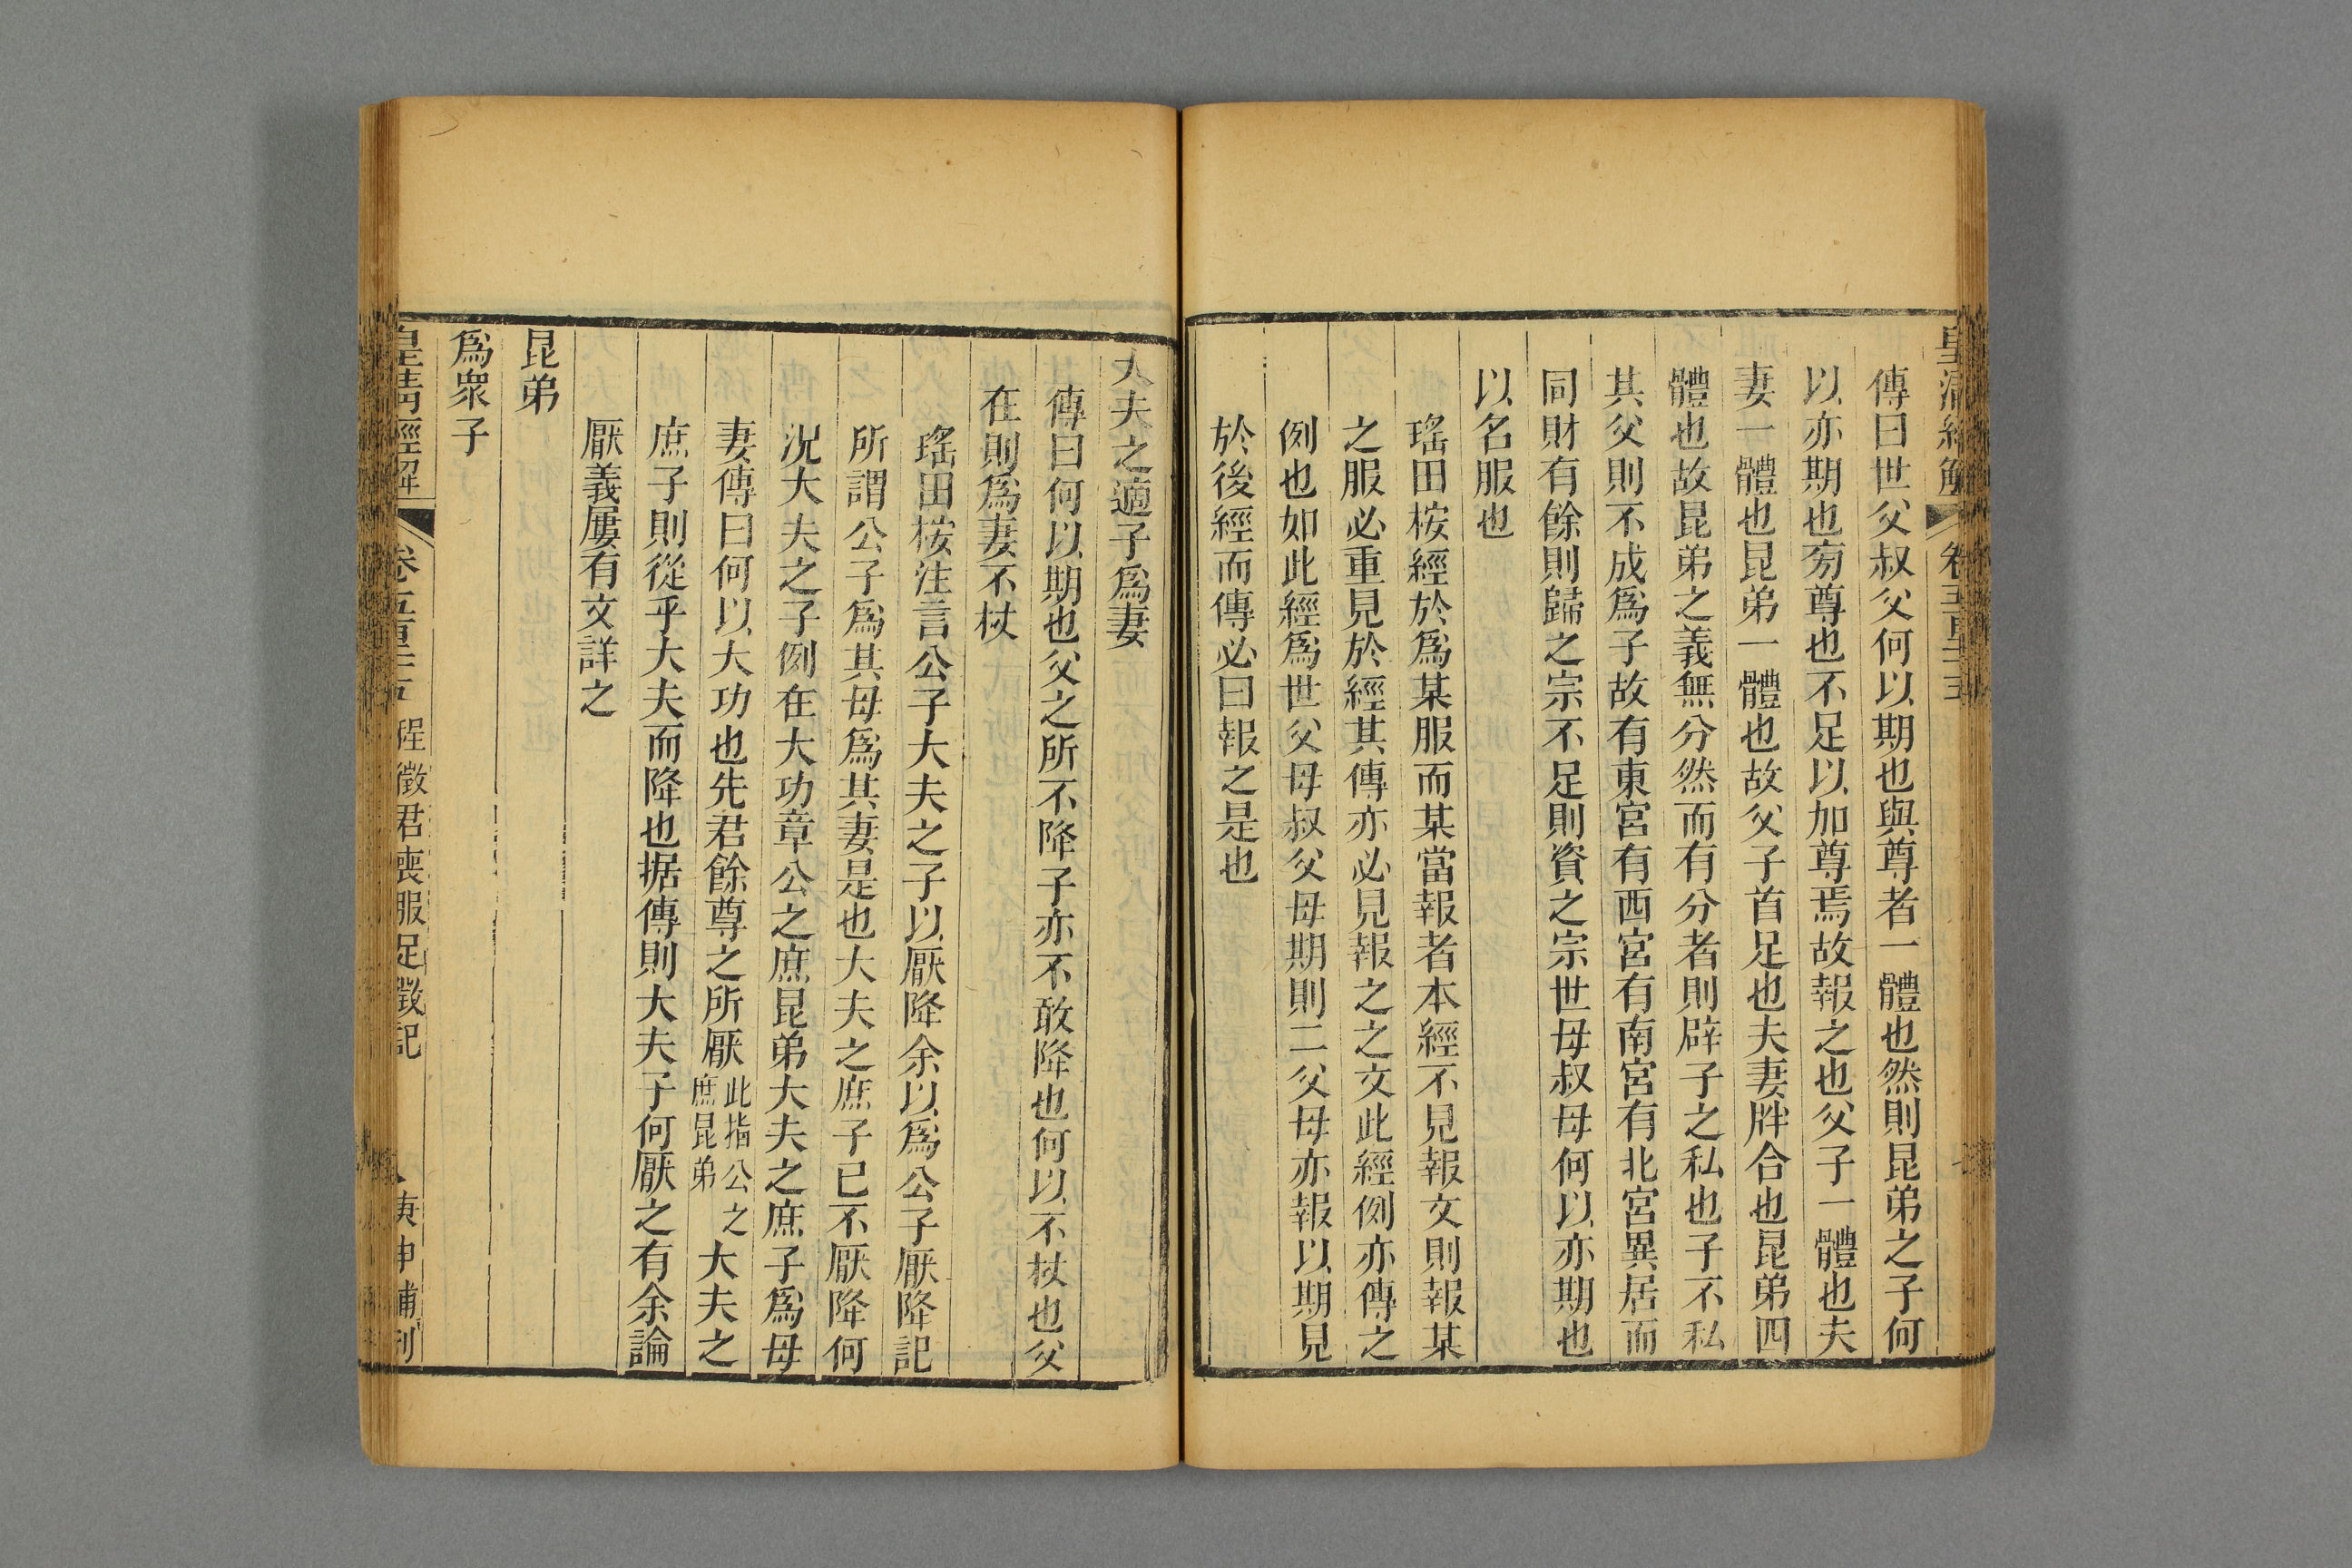 傳曰世父叔父何以期也與尊者一體也然則昆弟之子何
以亦期也旁尊也不足以加尊焉故報之也父子一體也夫
妻一體也昆弟一體也故父子首足也夫妻牉合也昆弟四
體也故昆弟之義無分然而有分者則辟子之私也子不私
其父則不成爲子故有東宮有西宮有南宮有北宮異居而
同財有餘則歸之宗不足則資之宗世母叔母何以亦期也
以名服也
瑤田桉經於爲某服而某當報者本經不見報文則報某
之服必重見於經其傳亦必見報之之文此經例亦傳之
例也如此經爲世父母叔父母期則二父母亦報以期見
於後經而傳必曰報之是也
大夫之適子爲妻
傳曰何以期也父之所不降子亦不敢降也何以不杖也父
在則爲妻不杖
瑤田桉注言公子大夫之子以厭降余以爲公子厭降記
所謂公子爲其母爲其妻是也大夫之庶子已不厭降何
況大夫之子例在大功章公之庶昆弟大夫之庶子爲母
妻傳曰何以大功也先君餘尊之所厭此指公之庶昆弟大夫之
庶子則從乎大夫而降也据傳則大夫子何厭之有余論
厭義屢有文詳之
昆弟
爲衆子
皇清經解 卷五百二十五 程徵君喪服足徵記 庚申補刊